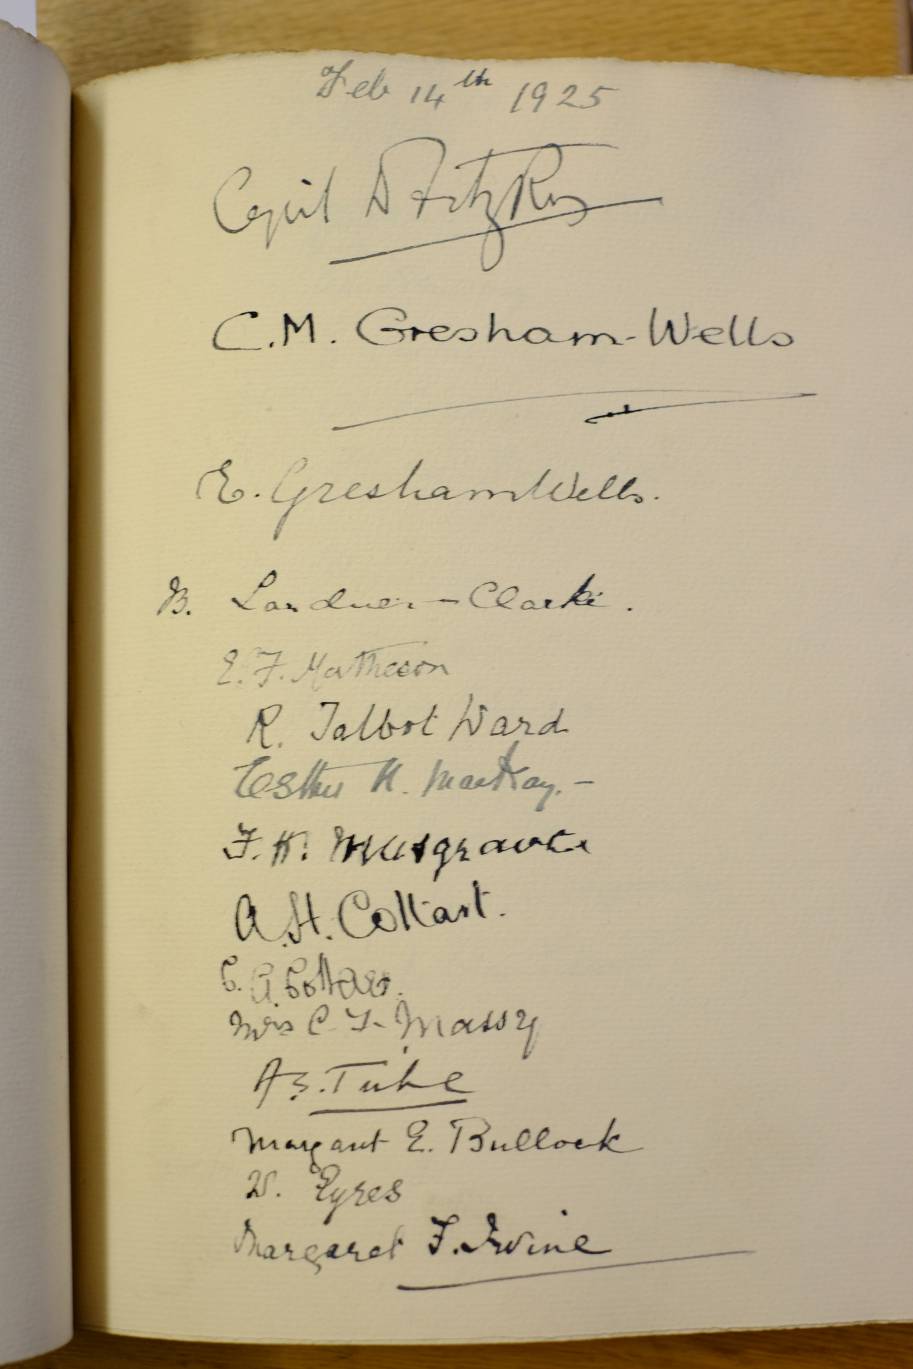 Feb 14th 1925
Cyril D FitzRoy
C.M. Gresham-Wells
E. Gresham Wells.
B. Lardner-Clarke.
E. F. Matheson
R. Talbot Ward
Esther H. MacKay.-
F. H. Musgrave
A. H. Collart.
C. A.
Mrs C. F. Massy
Margaret E. Bullock
W. Eyres
Margaret F. Irvine